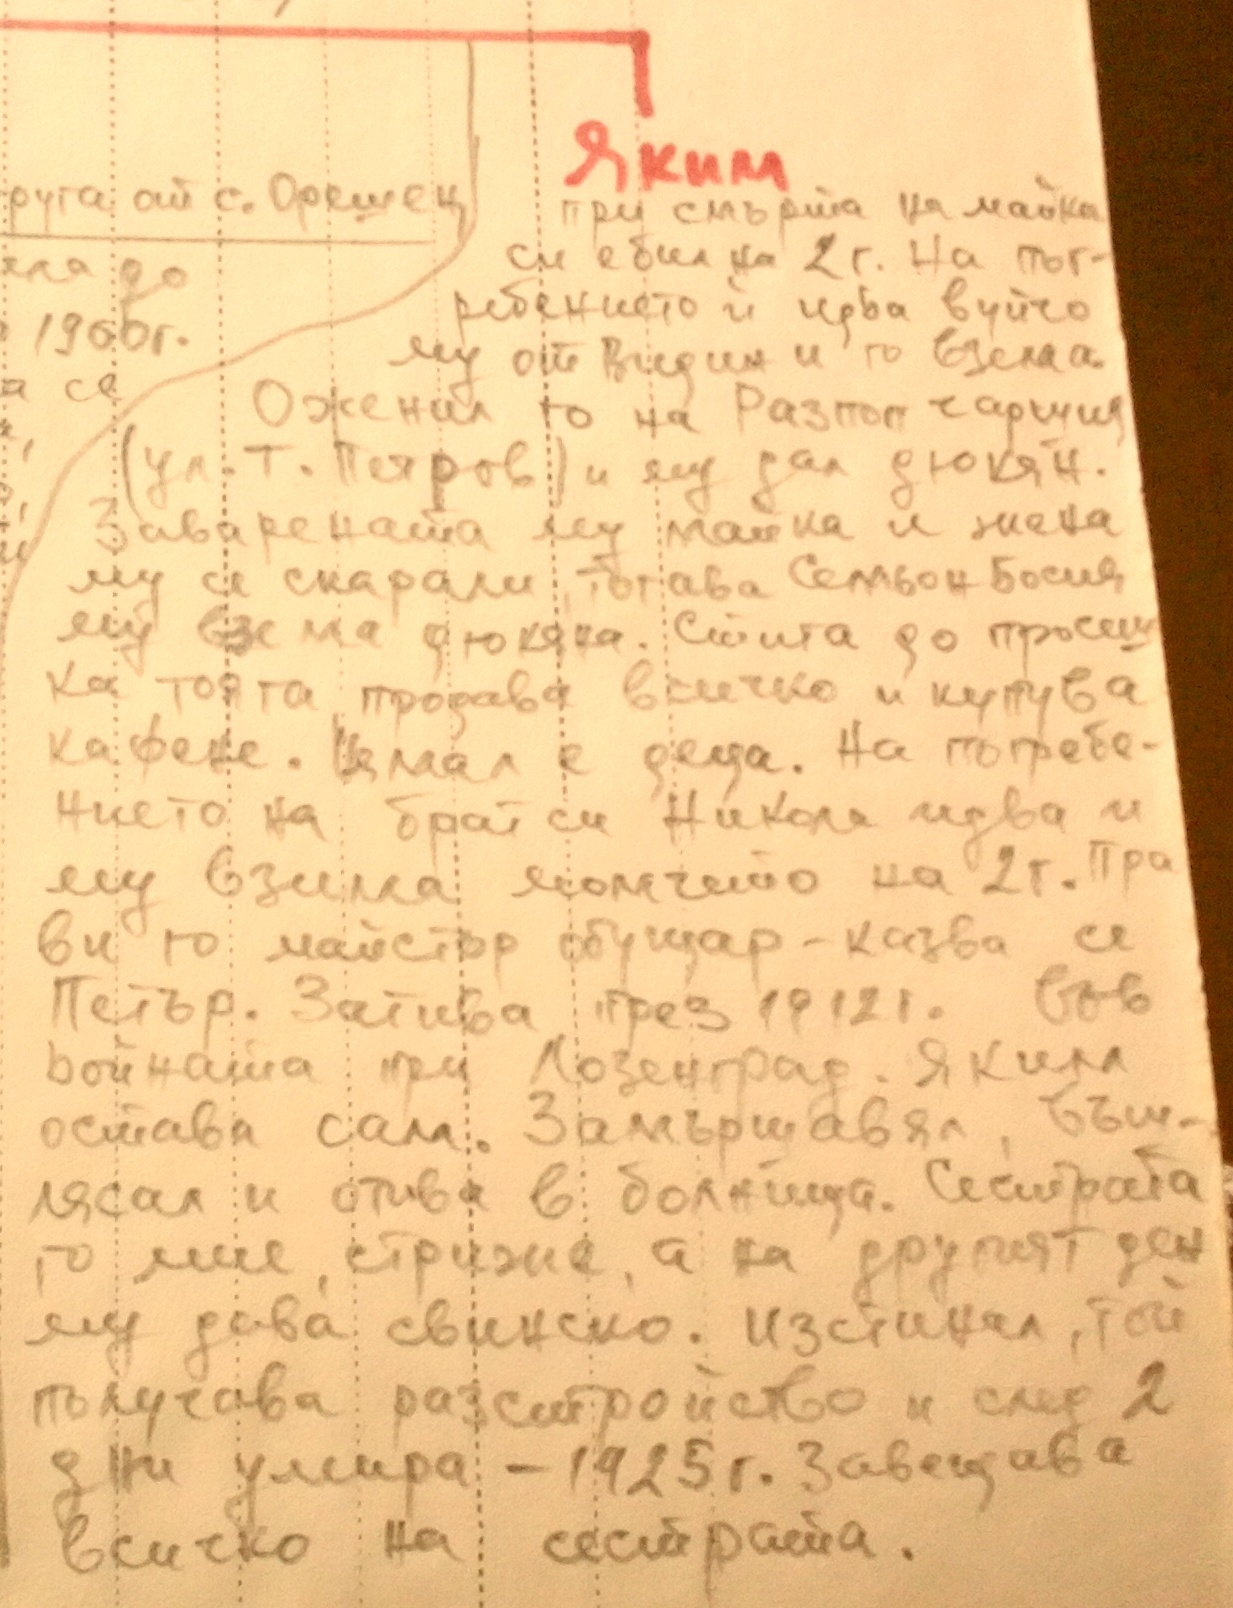 Яким
руга от с. Орешец
яла до
1960г.
а се
при смъртта на майка
си е бил на 2 г. На пог-
ребението ѝ идва вуйчо
му от Видин и го взема.
Оженил го на Разпоп чаршия
(ул. Т. Петров) и му дал дюкян.
Заварената му майка и жена
му се скарали, тогава Семьон Босия
му взема дюкяна. Стига до просеш
ка тояга продава всичко и купува
кафене. Нямал е деца. На погребе-
нието на брат си Никола идва и
му взима момчето на 2 г. Пра
ви го майстор обущар - казва се
Петър. Загива през 1912 г. във
войната при Лозенград. Яким
остава сам. Замършавял, въш-
лясал и отива в болница. Сестрата
го мие, стриже, а на другият ден
му дава свинско. Изстинал, той
получава разстройство и след 2
дни умира - 1925 г. Завещава
всичко на сестрата.